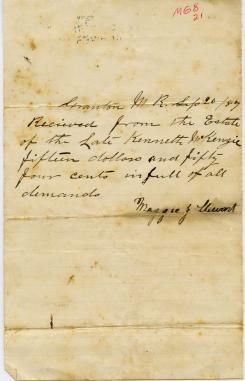 MG8
21
Granton M R Sep 20/89
Recieved from the Estate
of the Late Kenneth McKenzie
fifteen dollars and fifty
four cents in full of all
demands
Maggie J Stewart